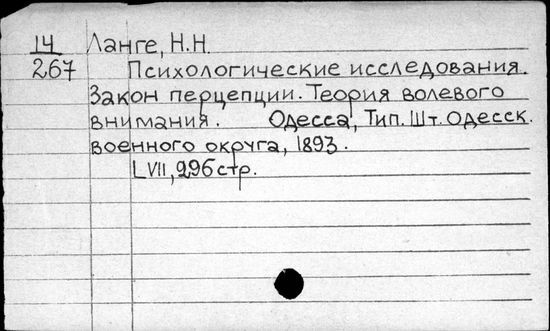 14 Ланге, Н.Н.
267 Психологические исследования.
Закон перцепции. Теория волевого
внимания. Одесса, Тип. Шт. Одесск.
военного округа, 1893.
LVII, 296 стр.